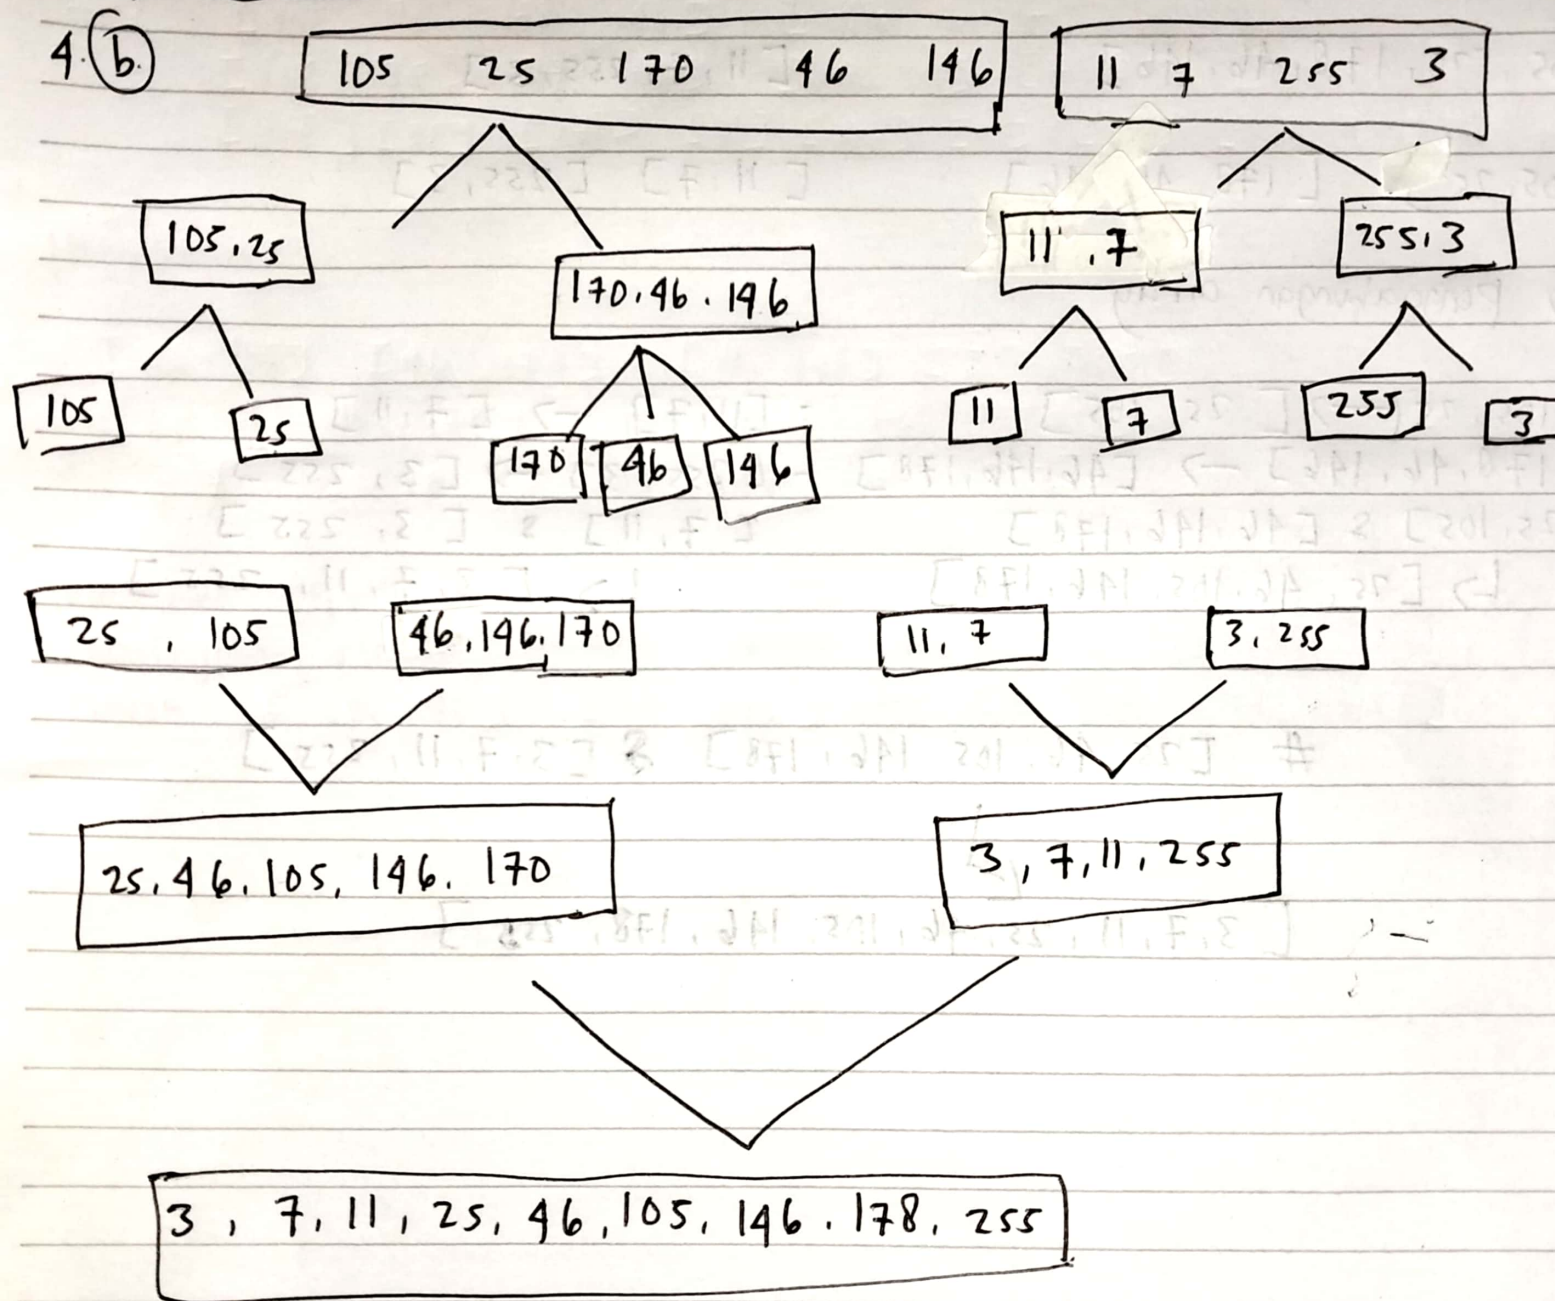 4. b. 105 25 170 46 146 11 7 255 3
105, 25 170, 46, 146 11, 7 255, 3
105 25 170 46 146 11 7 255 3
25, 105 46, 146, 170 11, 7 3, 255
25, 46, 105, 146, 170 3, 7, 11, 255
3, 7, 11, 25, 46, 105, 146, 178, 255